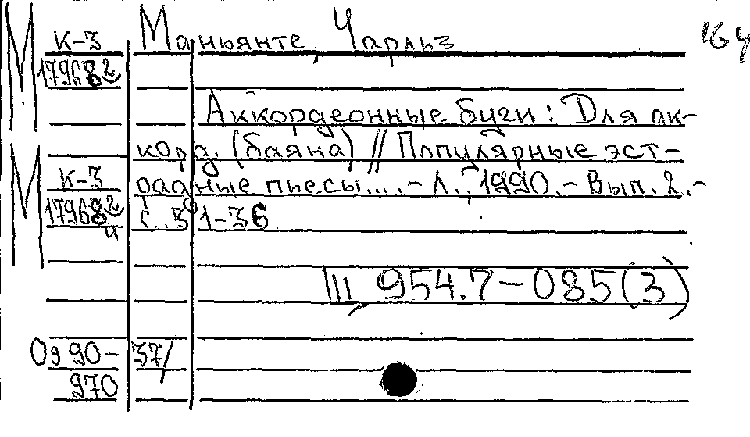 М К-3 Маньянте, Чарльз 164
179682
Аккордеонные буги: Для ак-
корд. (баяна) // Популярные эст-
М К-3 радные пьесы... .- Л., 1990.- Вып. 2.-
179682 с. 31-36
и
Щ 954.7-085(3)
О9 90- 37/
970